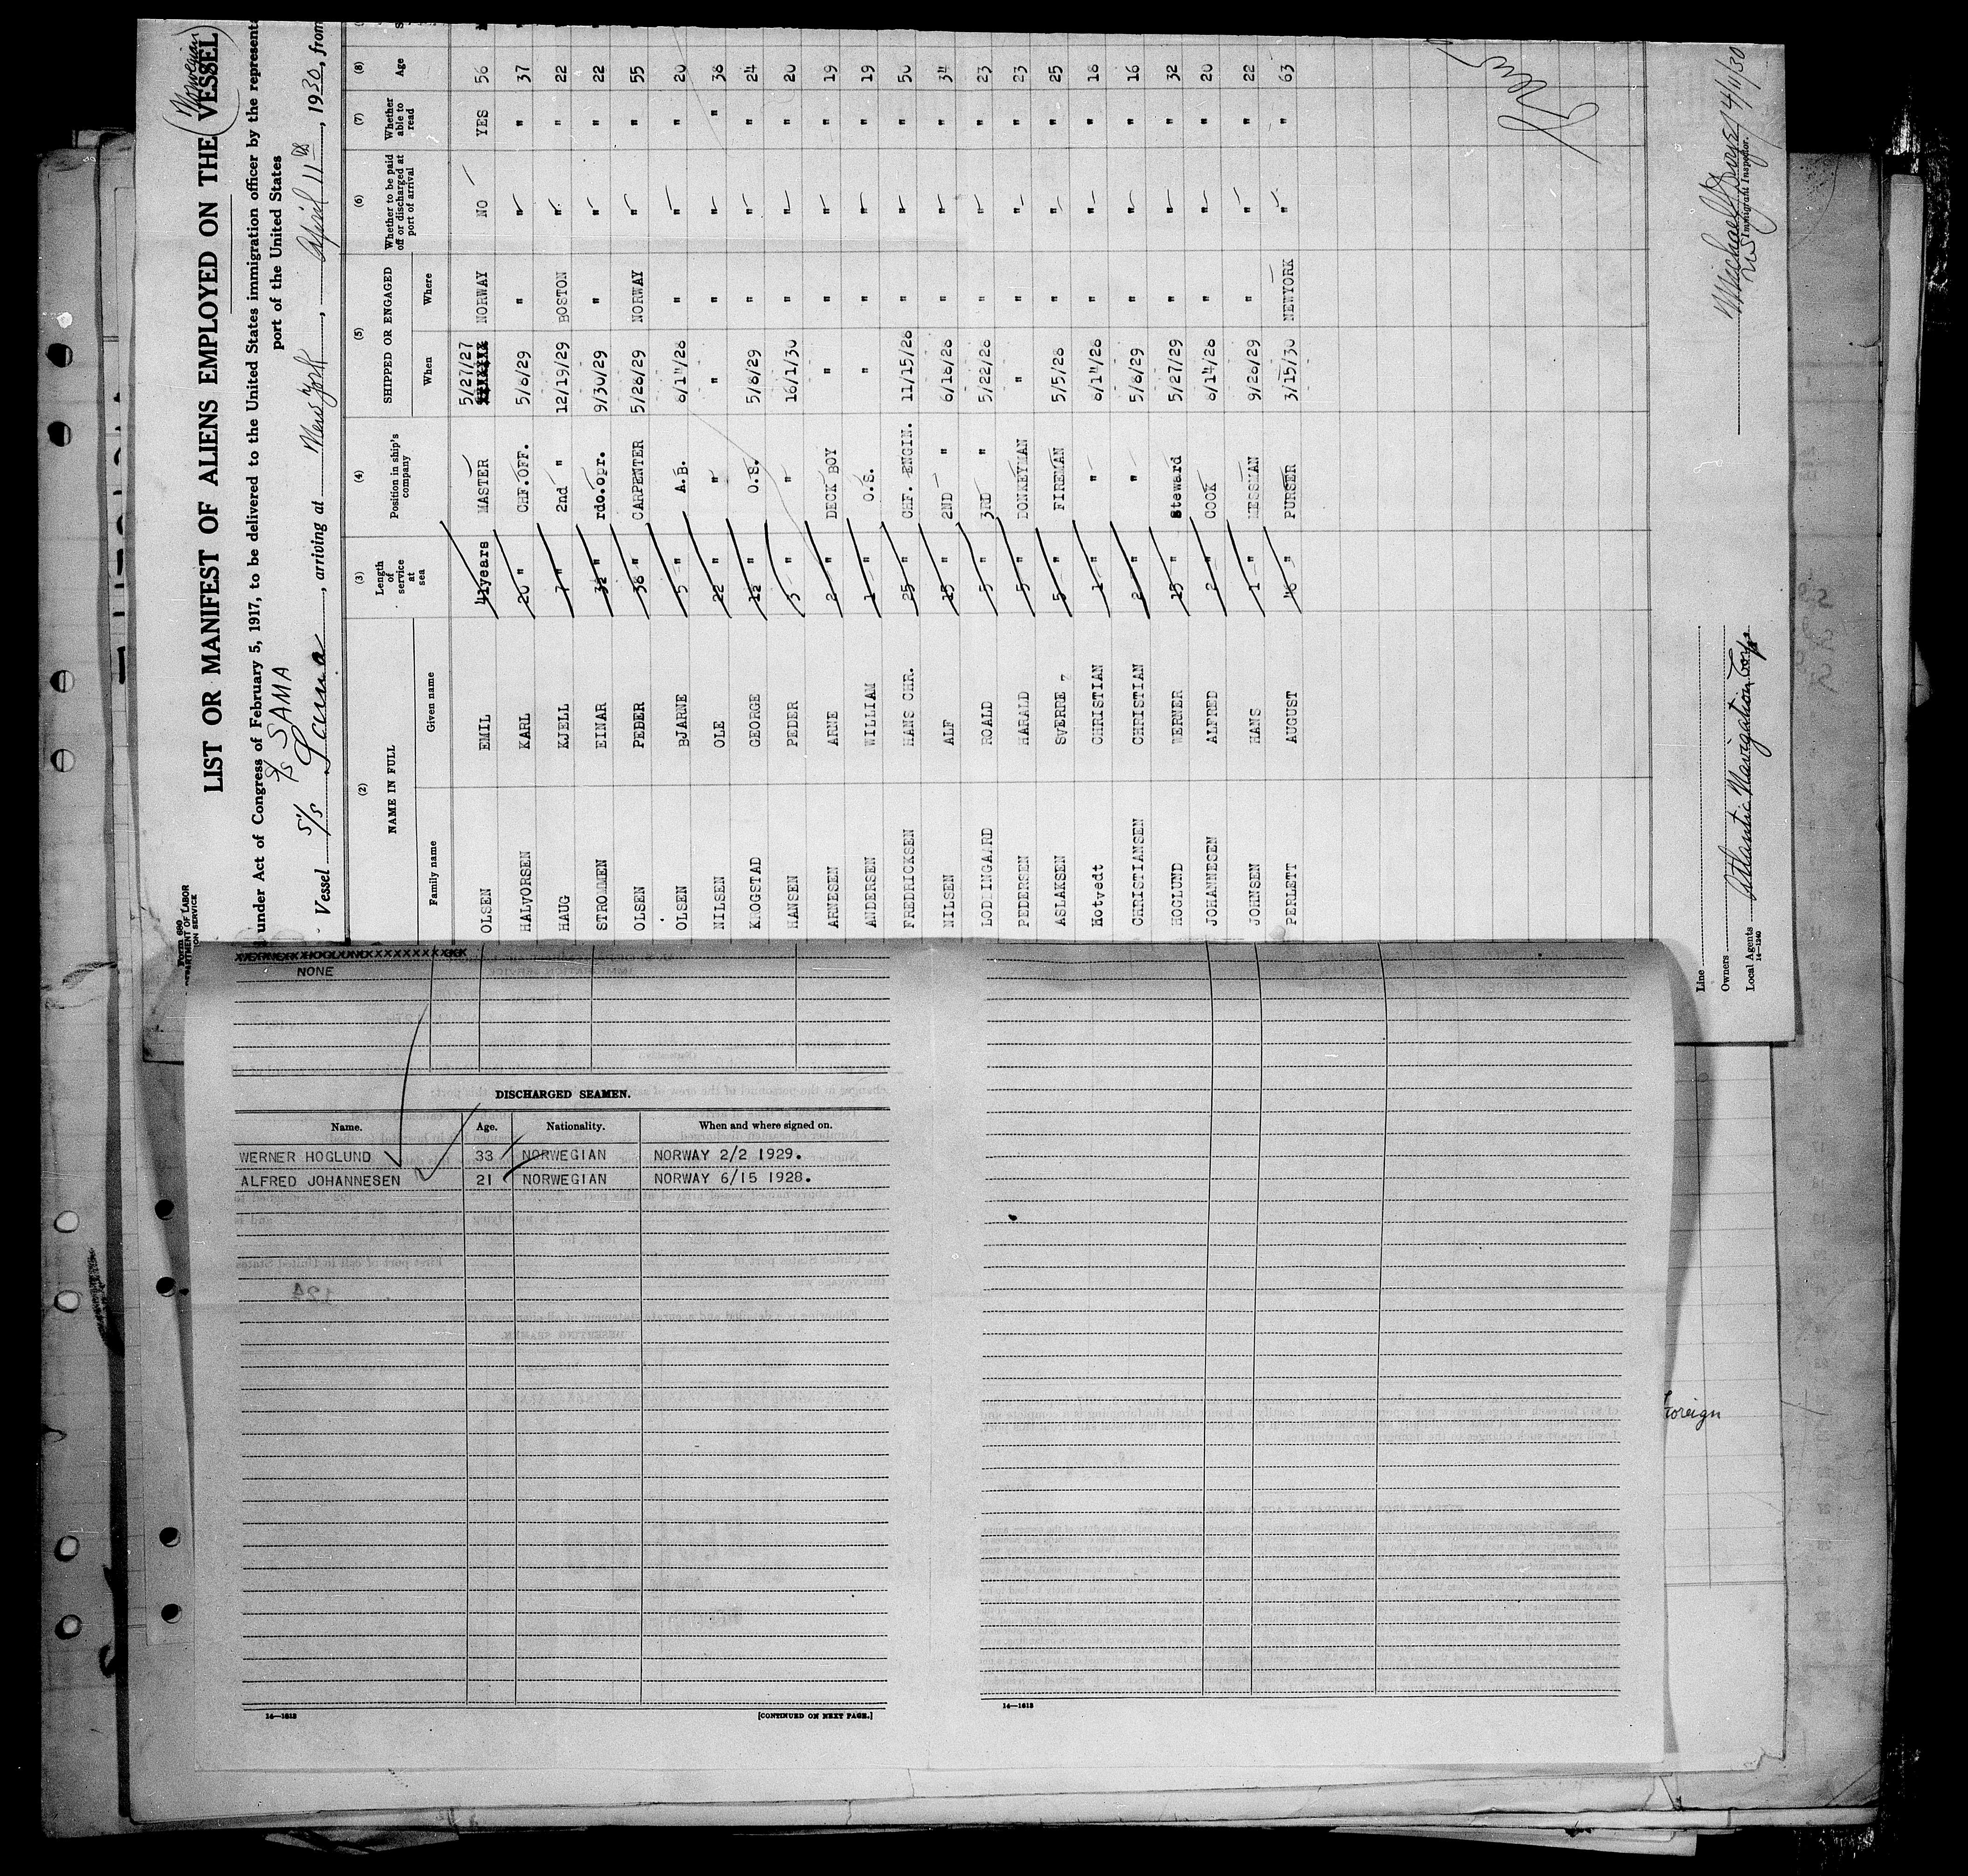 Form 680
DEPARTMENT OF LABOR
ION SERVICE
LIST OR MANIFEST OF ALIENS EMPLOYED ON THE VESSEL
(Norwegian)
under Act of Congress of February 5, 1917, to be delivered to the United States immigration officer by the represent
port of the United States
S/S SAMA
Vessel S/S Sama, arriving at New York, April 11th, 1930, from
(2) (3) (4) (5) (6) (7) (8)
NAME IN FULL Length of service at sea Position in ship's company SHIPPED OR ENGAGED Whether to be paid off or discharged at port of arrival Whether able to read Age
Family name Given name When Where
OLSEN EMIL 41years MASTER 5/27/27 NORWAY NO YES 56
HALVORSEN KARL 20 " CHF.OFF. 5/8/29 " " " 37
HAUG KJELL 7 " 2nd " 12/19/29 BOSTON " " 22
STROMMEN EINAR 3½ " rdo.opr. 9/30/29 " " " 22
OLSEN PEDER 38 " CARPENTER 5/28/29 NORWAY " " 55
OLSEN BJARNE 5 " A.B. 8/14/28 " " " 20
NILSEN OLE 22 " " " " " " 38
KROGSTAD GEORGE 12 " O.S. 5/8/29 " " " 24
HANSEN PEDER 3 " " 16/1/30 " " " 20
ARNESEN ARNE 2 " DECK BOY " " " " 19
ANDERSEN WILLIAM 1 " O.S. " " " " 19
FREDRICKSEN HANS CHR. 25 " CHF. ENGIN. 11/15/28 " " " 50
NILSEN ALF 15 " 2ND " 6/18/28 " " " 34
LODINGAARD ROALD 5 " 3RD " 5/22/28 " " " 23
PEDERSEN HARALD 5 " DONKEYMAN " " " " 23
ASLAKSEN SVERRE 5 " FIREMAN 5/5/28 " " " 25
Hotvedt CHRISTIAN 1 " " 8/14/28 " " " 18
CHRISTIANSEN CHRISTIAN 2 " " 5/8/29 " " " 18
HOGLUND WERNER 15 " Steward 5/27/29 " " " 32
JOHANNESEN ALFRED 2 " COOK 8/14/28 " " " 20
JOHNSEN HANS 1 " MESSMAN 9/28/29 " " " 22
PERLETT AUGUST 48 " PURSER 3/15/30 NEWYORK " " 63
4/11/30
Immigrant Inspector.
Line
Owners
Local Agents Atlantic Navigation Corp
14—1240
NONE
DISCHARGED SEAMEN.
Name. Age. Nationality. When and where signed on.
WERNER HOGLUND 33 NORWEGIAN NORWAY 2/2 1929.
ALFRED JOHANNESEN 21 NORWEGIAN NORWAY 6/15 1928.
14—1613
[CONTINUED ON NEXT PAGE.]
14—1613
Foreign